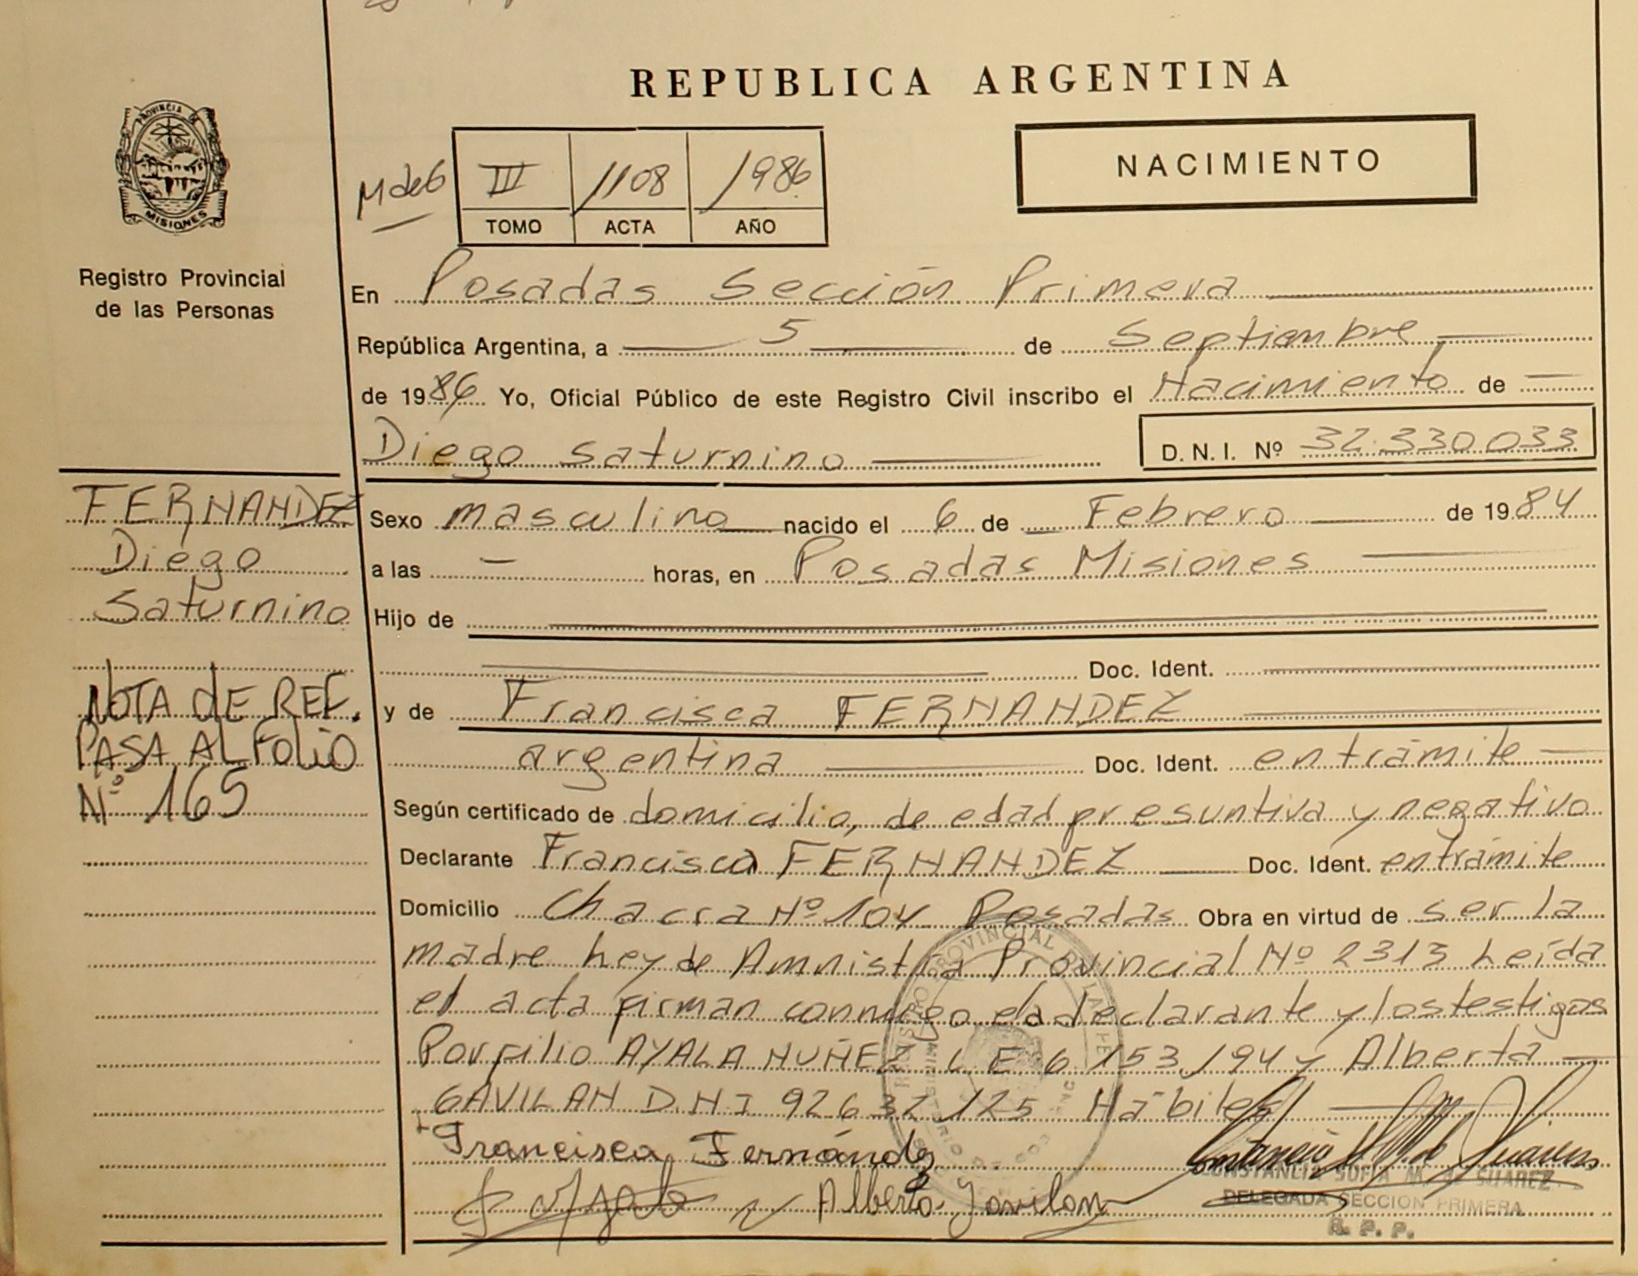 REPUBLICA ARGENTINA
PROVINCIA DE
MISIONES
Registro Provincial
de las Personas
M de G
III 1108 1986
TOMO ACTA AÑO
NACIMIENTO
En Posadas Sección Primera
República Argentina, a 5 de Septiembre
de 1986 Yo, Oficial Público de este Registro Civil inscribo el Nacimiento de
Diego Saturnino D. N. I. Nº 32.330.033
FERNANDEZ
Diego
Saturnino
NOTA dE REF.
PASA AL FOLIO
Nº 165
Sexo masculino nacido el 6 de Febrero de 1984
a las — horas, en Posadas Misiones
Hijo de
Doc. Ident.
y de Francisca FERNANDEZ
argentina Doc. Ident. en trámite
Según certificado de domicilio, de edad presuntiva y negativo
Declarante Francisca FERNANDEZ Doc. Ident. en trámite
Domicilio Chacra Nº 104 Posadas Obra en virtud de ser la
madre Ley de Amnistía Provincial Nº 2313 Leída
el acta firman conmigo la declarante y los testigos
Porfilio AYALA NUÑEZ L E 6 153 194 y Alberta
GAVILAN D.N I 92 632 125 Hábiles
Francisca Fernández
CONSTANCIA SOFIA M. de SUAREZ
DELEGADA SECCION PRIMERA
R. P. P.